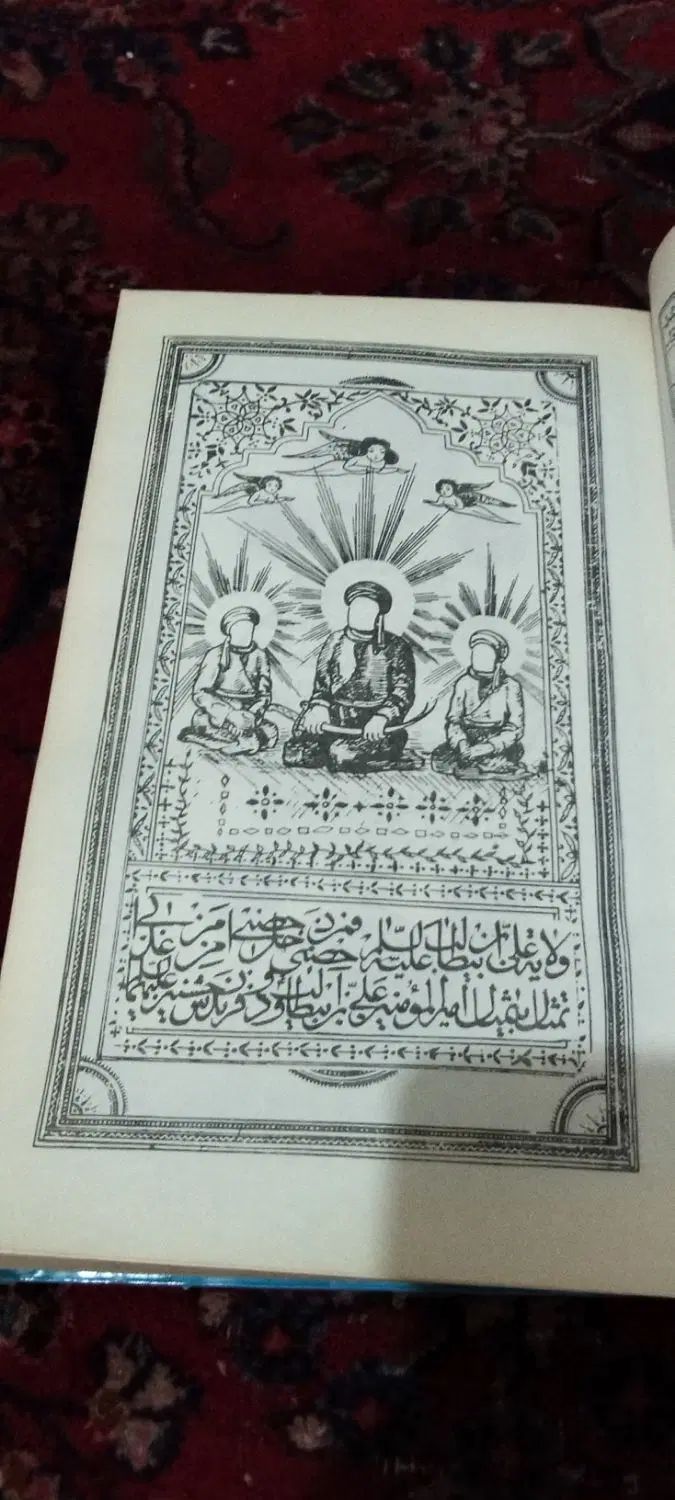 ولایة علی بن ابیطالب علیه السلم حصنی فمن دخل حصنی امن من عذابی
تمثال بیمثال امیرالمؤمنین علی بن ابیطالب و دو فرزندش حسنین علیهما